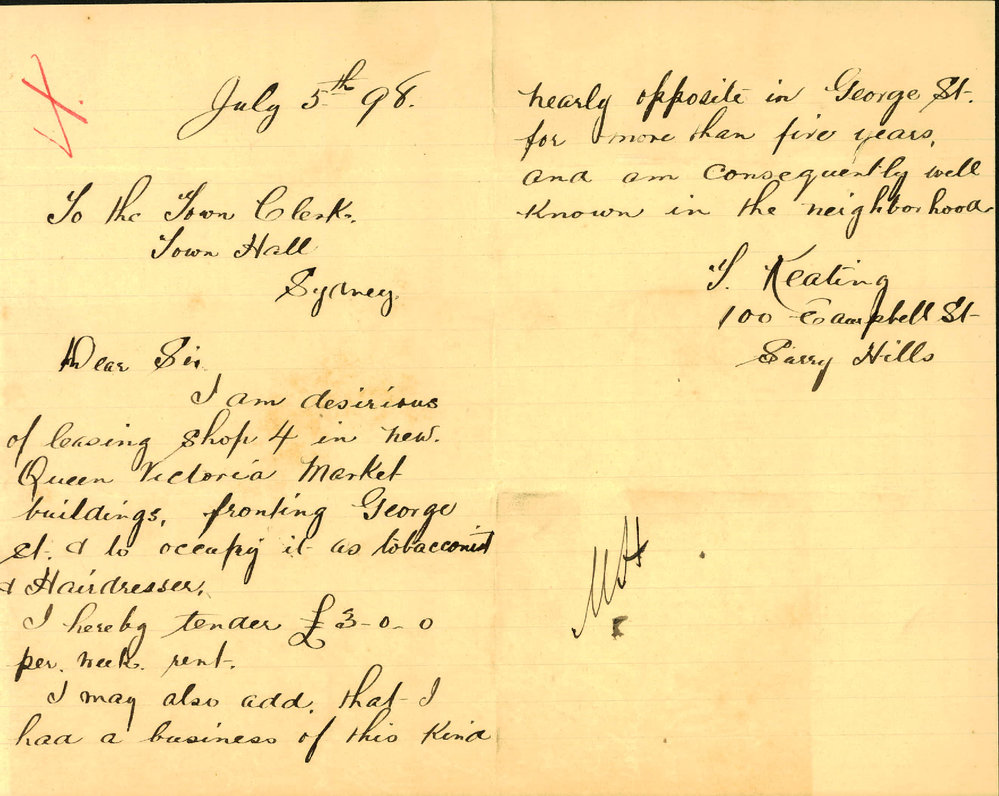 July 5th 98.
To the Town Clerk.
Town Hall
Sydney.
Dear Sir
I am desirious
of leasing shop 4 in new.
Queen Victoria Market
buildings, fronting George
st. & to occupy it as tobacconist
& Hairdresser.
I hereby tender £3-0-0
per. week. rent.
I may also add. that I
had a business of this kind
nearly opposite in George St.
for more than five years,
and am consequently well
known in the neighborhood
T. Keating
100 Campbell St
Surry Hills